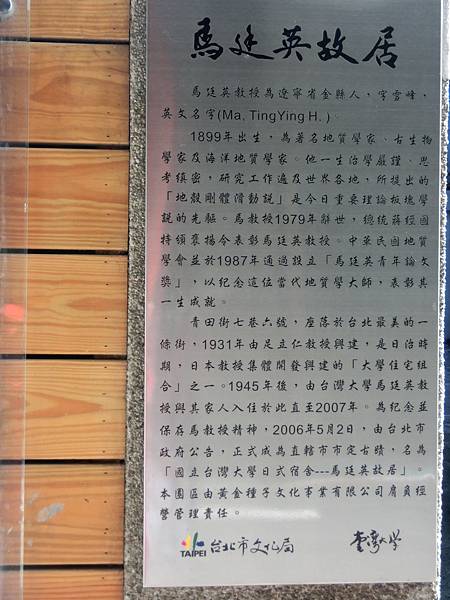 馬廷英故居
馬廷英教授為遼寧省金縣人，字雪峰，
英文名字(Ma, TingYing H. )。
1899年出生，為著名地質學家、古生物
學家及海洋地質學家。他一生治學嚴謹、思
考縝密，研究工作遍及世界各地，所提出的
「地殼剛體滑動說」是今日重要理論板塊學
說的先驅。馬教授1979年辭世，總統蔣經國
特頒褒揚令表彰馬廷英教授。中華民國地質
學會並於1987年通過設立「馬廷英青年論文
獎」，以紀念這位當代地質學大師，表彰其
一生成就。
青田街七巷六號，座落於台北最美的一
條街，1931年由足立仁教授興建，是日治時
期，日本教授集體開發興建的「大學住宅組
合」之一。1945年後，由台灣大學馬廷英教
授與其家人入住於此直至2007年。為紀念並
保存馬教授精神，2006年5月2日，由台北市
政府公告，正式成為直轄市市定古蹟，名為
「國立台灣大學日式宿舍---馬廷英故居」。
本園區由黃金種子文化事業有限公司肩負經
營管理責任。
TAIPEI 台北市文化局 臺灣大學